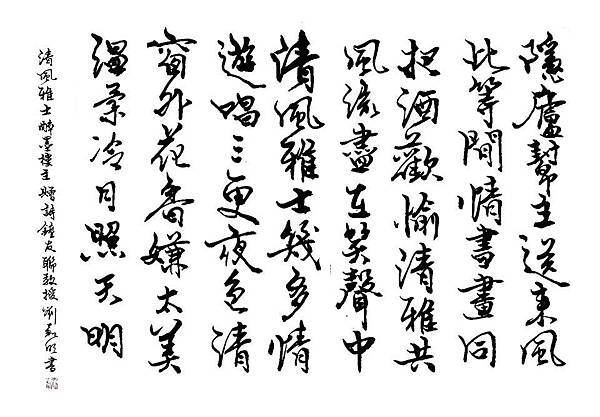 隱廬幫主送東風
此等閒情書畫同
把酒歡愉清雅共
風流盡在笑聲中
清風雅士幾多情
遊唱三更夜色清
窗外花香嫌太美
溫柔冷月照天明
清風雅士墨樓主贈詩鐘友聯教授劉明書